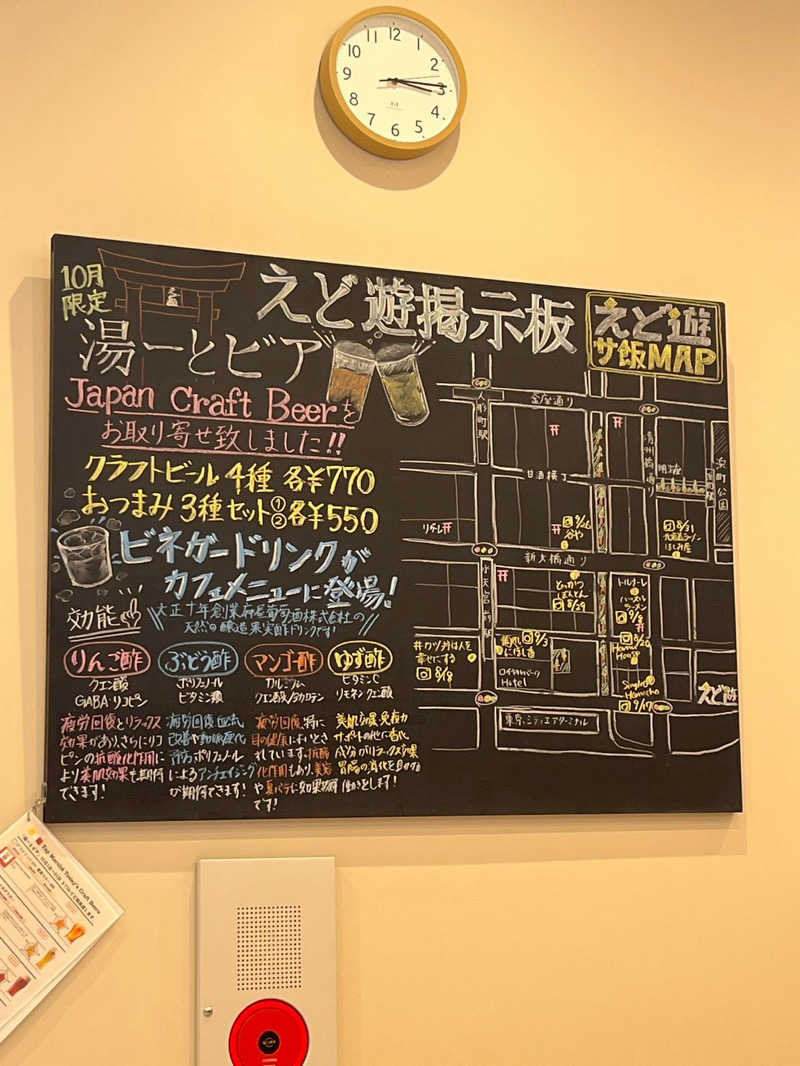 11 12 1
10 2
9 3
8 4
7 6 5
10月
限定
えど遊掲示板
えど遊
サ飯MAP
湯ーとビア
Japan Craft Beerを
お取り寄せ致しました!!
クラフトビール4種 各¥770
おつまみ3種セット①②各¥550
ビネガードリンクが
カフェメニューに登場!
効能
天然の醸造果実酢ドリンクです!
りんご酢
クエン酸
GABA・リコピン
疲労回復とリラックス
効果があり、さらにリコ
ピンの抗酸化作用に
より美肌効果も期待
できます!
ぶどう酢
ポリフェノール
ビタミン類
疲労回復、血流
改善や動脈硬化
予防、ポリフェノール
によるアンチエイジング
が期待できます!
マンゴー酢
カルシウム
クエン酸
疲労回復、特に
目の健康によいとさ
れています。抗酸
化作用もあり、美容
や夏バテに効果
です!
ゆず酢
ビタミンC
リモネン クエン酸
美肌効果、免疫力
サポートの他に香化
成分がリラックス効果
働きをします!
人形町駅
金座通り
清洲橋通り
明治座
浜町駅
浜町公園
甘酒横丁
リチレ
8/26
谷や
8/31
北海道ラーメン
新大橋通り
水天宮前駅
とんかつ
8/29
トルナーレ
ラーメン
8/8
8/20
Hamacho
9/3
にほし香
丼カツ丼は人を
幸せにする
8/8
ロイヤルパーク
Hotel
Singha
Hamacho
9/17
えど遊
東京シティエアターミナル
Top Marché Today's Craft Beers